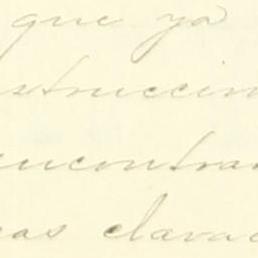 que ya
struccion
encontra
as clava